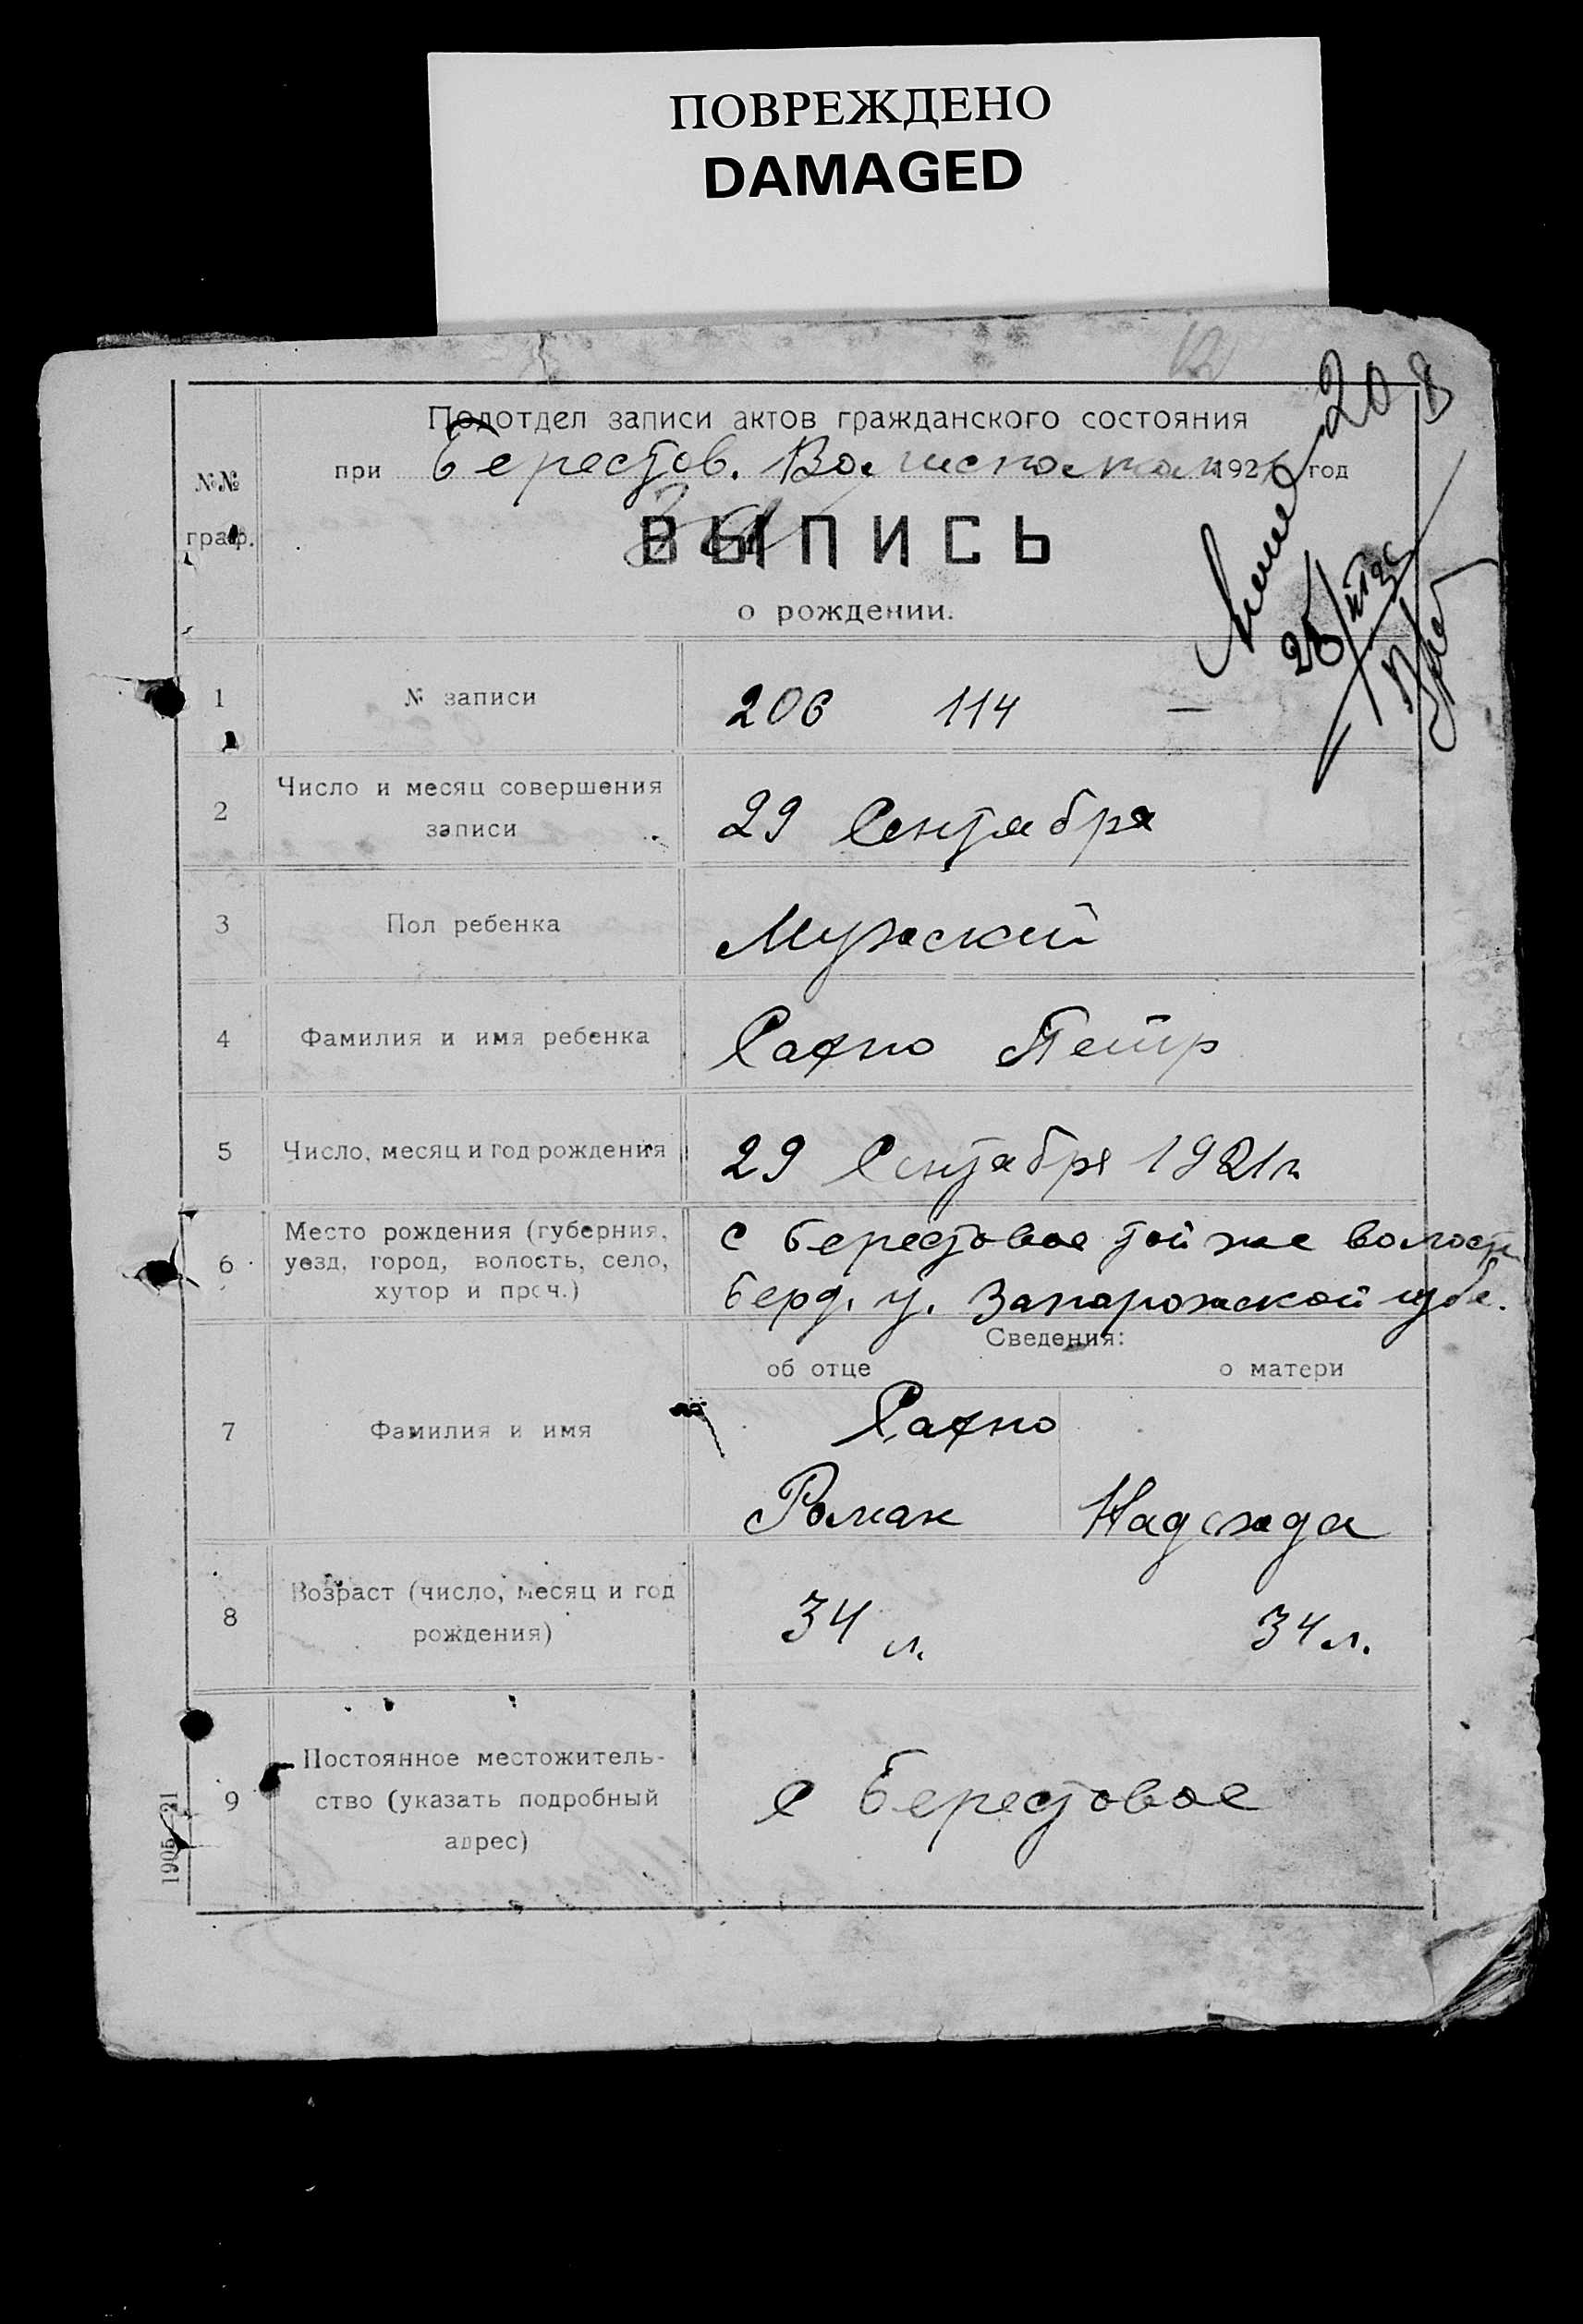 ПОВРЕЖДЕНО
DAMAGED
208
Подотдел записи актов гражданского состояния
при Берестов. Волисполкоме 1921 год
№№
граф.
ВЫПИСЬ
о рождении.
1 № записи 206 114 —
2 Число и месяц совершения
записи 29 Сентября
3 Пол ребенка Мужский
4 Фамилия и имя ребенка Сахно Петр
5 Число, месяц и год рождения 29 Сентября 1921 г.
6 Место рождения (губерния,
уезд, город, волость, село,
хутор и проч.)
с Берестовое той же волости
Берд. у. Запарожской губе.
Сведения:
об отце о матери
7 Фамилия и имя Сахно
Роман Надежда
8 Возраст (число, месяц и год
рождения) 34 л. 34 л.
9 Постоянное местожитель-
ство (указать подробный
адрес) с Берестовое
1905/21